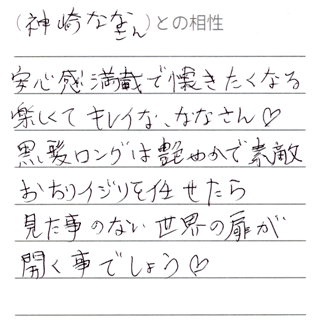 （神崎ななさん）との相性
安心感満載で懐きたくなる
楽しくてキレイな、ななさん♡
黒髪ロングは艶やかで素敵
おちりイジリを任せたら
見た事のない世界の扉が
開く事でしょう♡